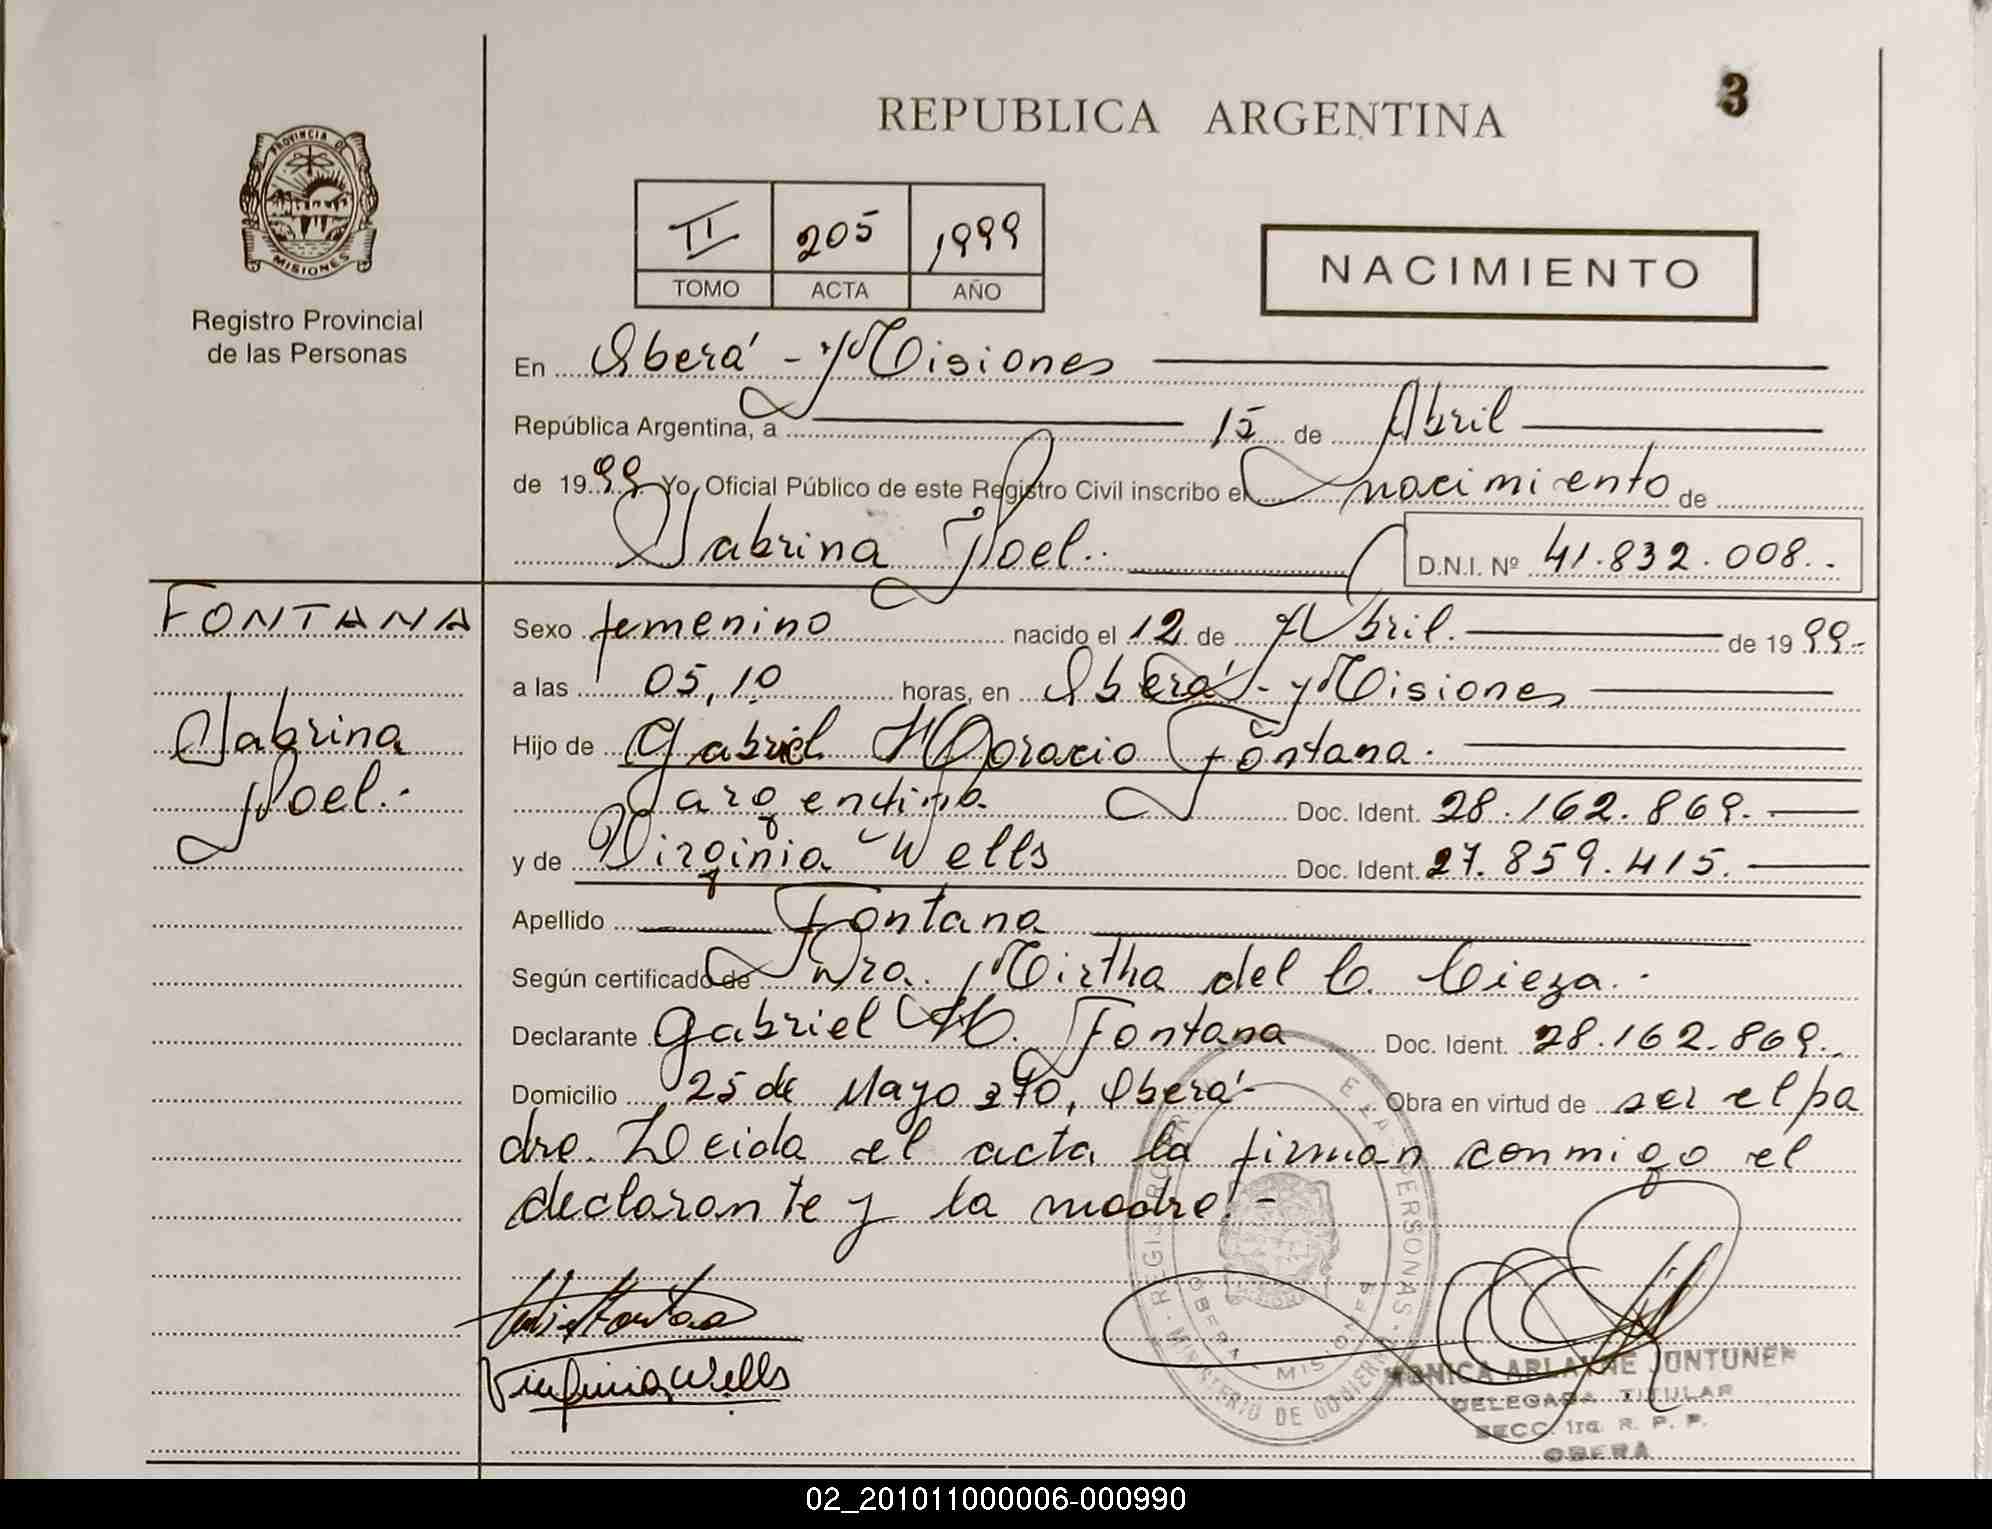 REPUBLICA ARGENTINA
3
PROVINCIA DE
MISIONES
Registro Provincial
de las Personas
II 205 1999
TOMO ACTA AÑO
NACIMIENTO
En Oberá - Misiones
República Argentina, a 15 de Abril
de 1999 Yo, Oficial Público de este Registro Civil inscribo el nacimiento de
Sabrina Noel.. D.N.I. Nº 41.832.008..
FONTANA
Sabrina
Noel.-
Sexo femenino nacido el 12 de Abril. de 1999.-
a las 05,10 horas, en Oberá - Misiones
Hijo de Gabriel Horacio Fontana.
argentino Doc. Ident. 28.162.869.
y de Virginia Wells Doc. Ident. 27.859.415.
Apellido Fontana
Según certificado de Dra. Mirtha del C. Cieza.-
Declarante Gabriel H. Fontana Doc. Ident. 28.162.869.
Domicilio 25 de Mayo 370, Oberá- Obra en virtud de ser el pa
dre. Leida el acta la firman conmigo el
declarante y la madre.-
Virginia Wells
OBERA - MISIONES
MONICA ARLAYNE JUNTUNEN
DELEGADA TITULAR
SECC. 1ra. R. P. P.
OBERA
02_201011000006-000990